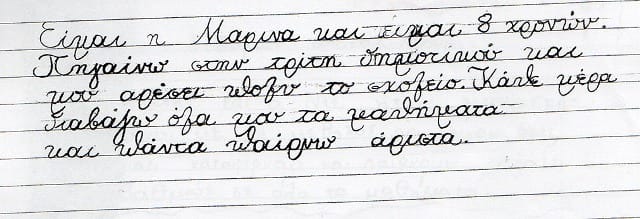 Είμαι η Μαρινα και είμαι 8 χρονών.
Πηγαίνω στην τρίτη δημοτικού και
μου αρέσει πολύ το σχολείο. Κάθε μέρα
διαβάζω όλα μου τα μαθήματα
και πάντα παίρνω άριστα.